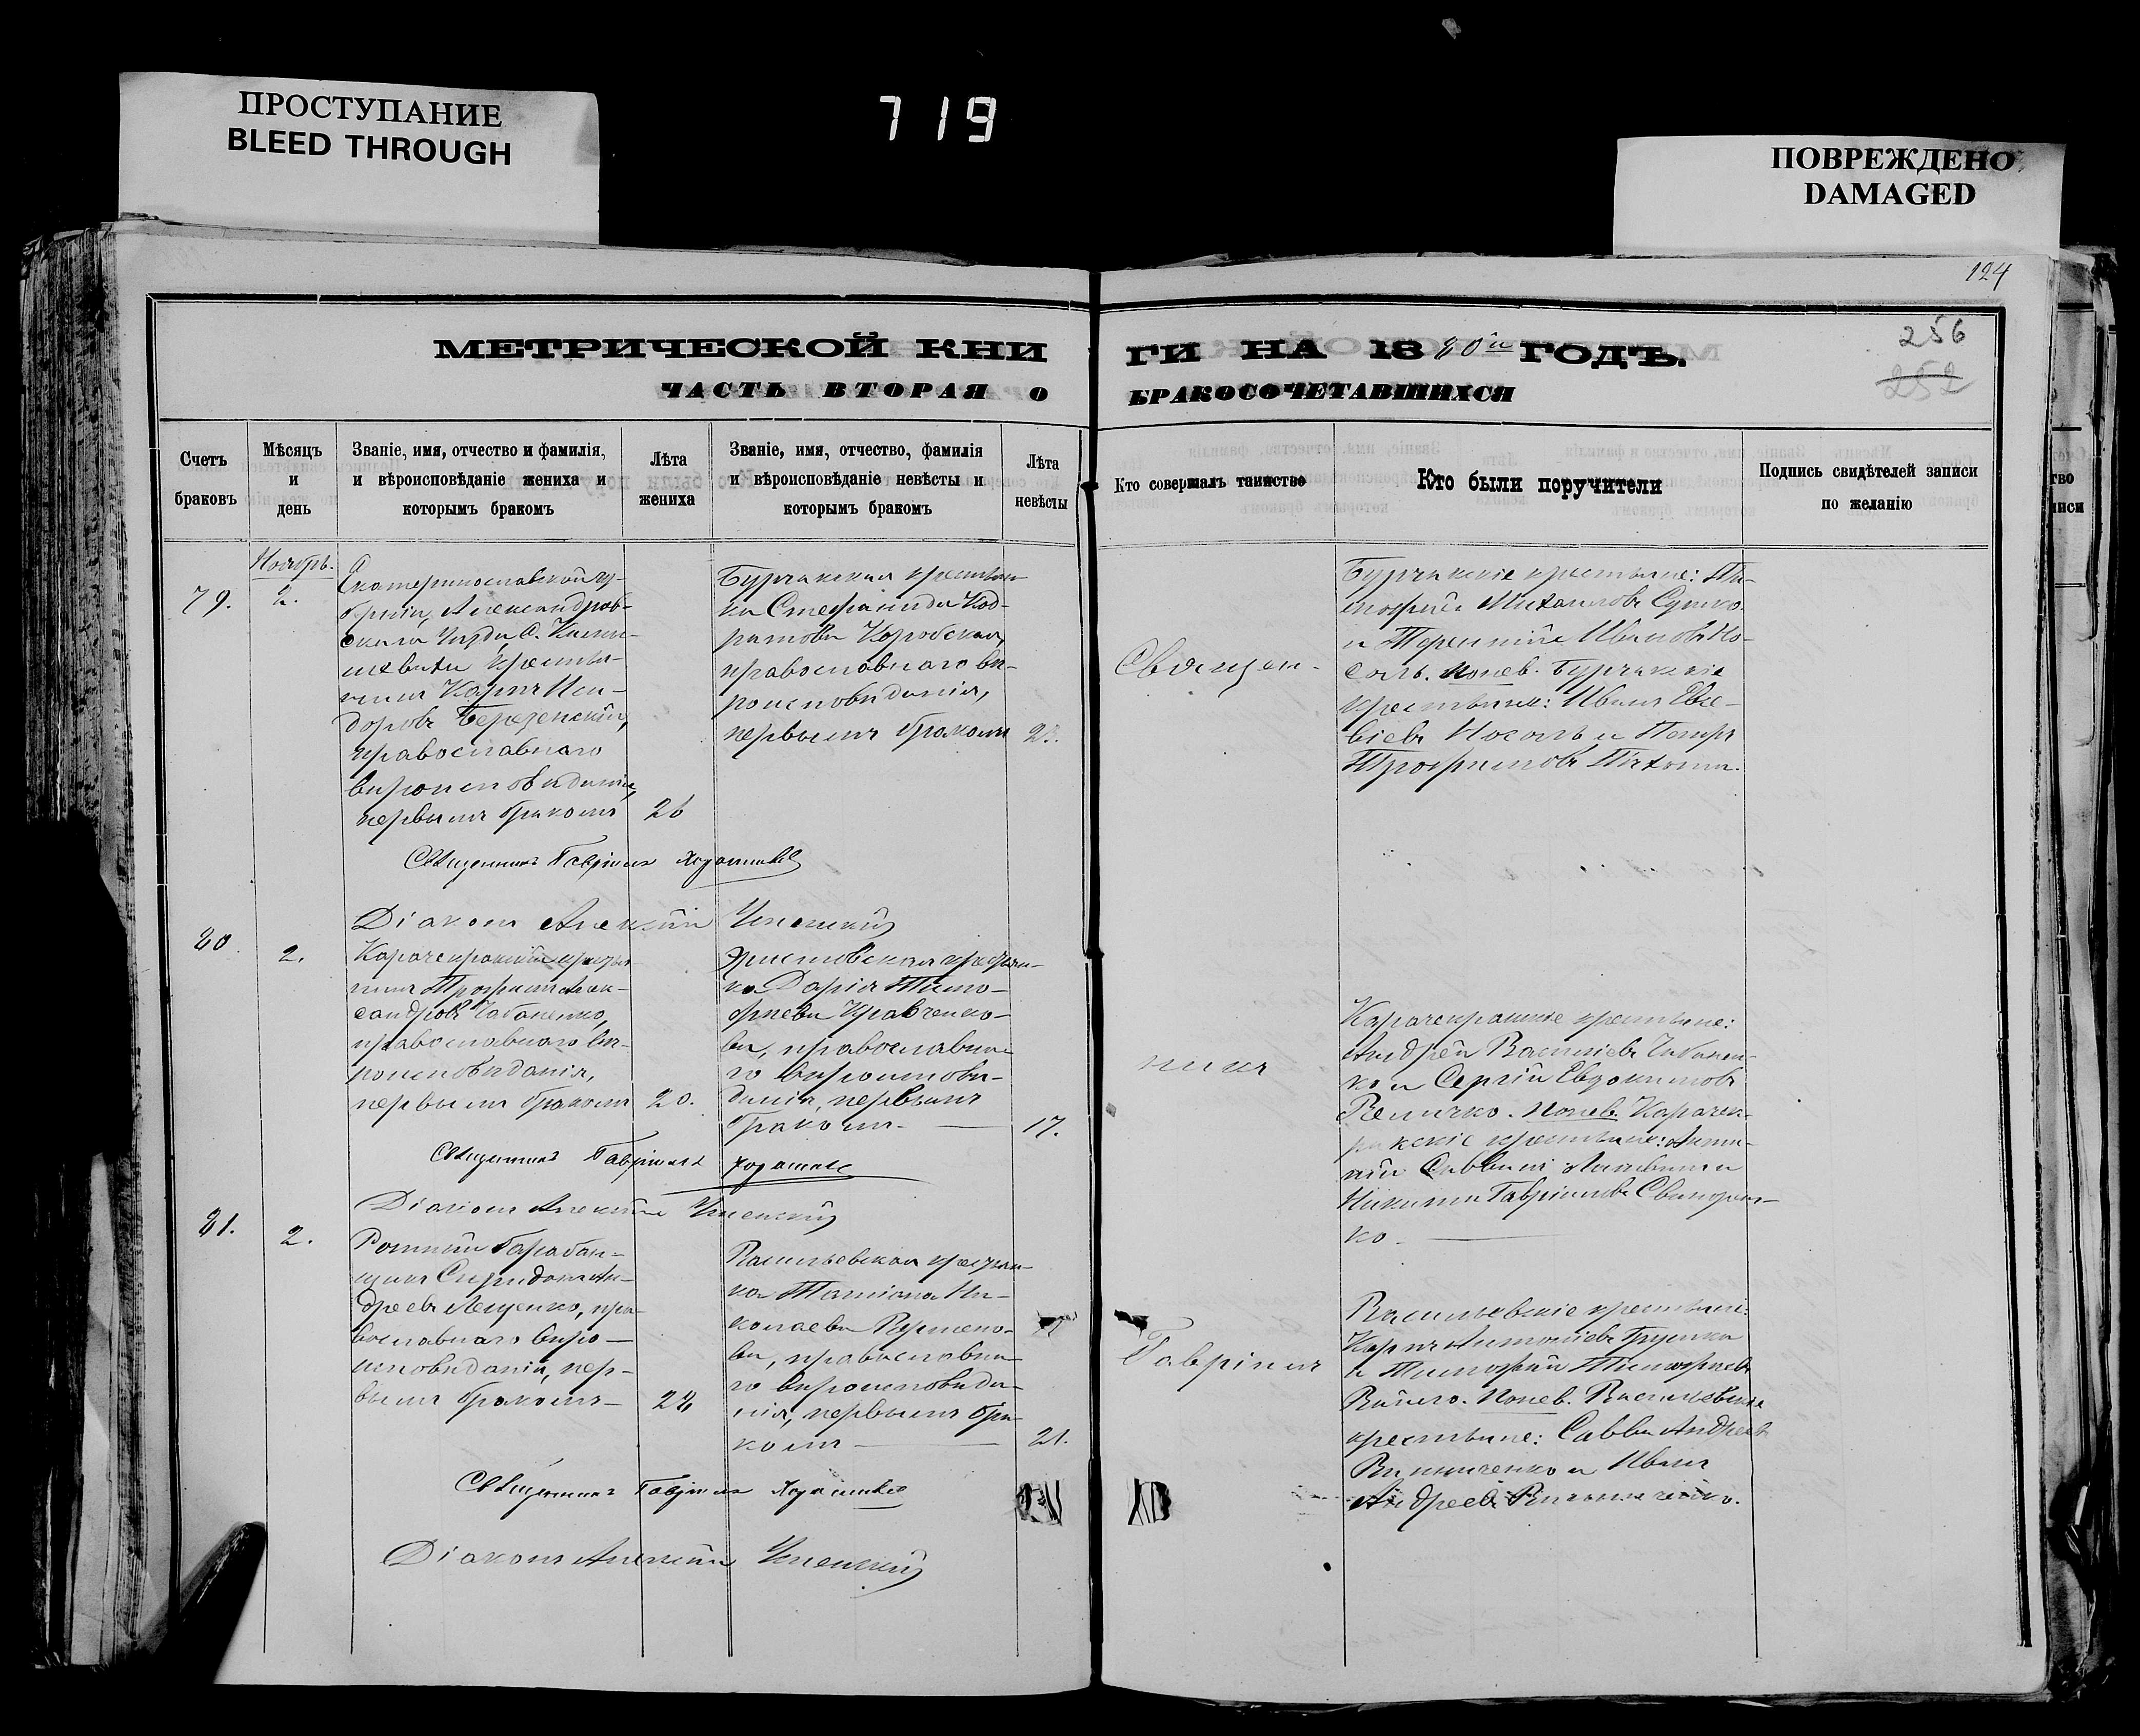 ПРОСТУПАНИЕ
BLEED THROUGH
719
ПОВРЕЖДЕНО
DAMAGED
124
256
252
МЕТРИЧЕСКОЙ КНИ
ГИ НА 1880й ГОДЪ.
ЧАСТЬ ВТОРАЯ О
БРАКОСОЧЕТАВШИХСЯ
Счетъ браковъ
Мѣсяцъ и день
Званіе, имя, отчество и фамилія,
и вѣроисповѣданіе жениха и
которымъ бракомъ
Лѣта жениха
Званіе, имя, отчество, фамилія
и вѣроисповѣданіе невѣсты и
которымъ бракомъ
Лѣта невѣсты
Кто совершалъ таинство
Кто были поручители
Подпись свидѣтелей записи
по желанію
Ноябрь.
79.
2.
Екатеринославской гу-
берніи, Александров-
скаго уѣзда, С.
крестья-
нинъ Карпъ Иси-
доровъ
православнаго
вѣроисповѣданія,
первымъ бракомъ
26
Бурчакская крестьян-
ка Стефанида Код-
ратова
православнаго вѣ-
роисповѣданія,
первымъ бракомъ
Священ-
Бурчакскіе крестьяне: Ти-
мофей Михаиловъ Сушко
и Терентій Ивановъ Но-
соль. Понев. Бурчакскіе
крестьяне: Иванъ Евсе-
віевъ Носоль и Петръ
Трофимовъ
Священникъ Гавріилъ
Діаконъ Алексій Успенскій
80
2.
Карачекракскій крестья-
нинъ Трофимъ Алек-
сандровъ Чабаненко,
православнаго вѣ-
роисповѣданія,
первымъ бракомъ
20.
крестьян-
ка Дарія Тимо-
фѣева Кравченко-
ва, православна-
го вѣроисповѣ-
данія, первымъ
бракомъ
17.
никъ
Карачекракскіе крестьяне:
Андрей Василіевъ Чабанен-
ко и Сергій Евдокимовъ
Величко. Понев. Карачек-
ракскіе крестьяне:
Никита Гавріиловъ
ко
Священникъ Гавріилъ
Діаконъ Алексій Успенскій
81.
2.
Ротный барабан-
щикъ Спиридонъ Ан-
дреевъ Лещенко, пра-
вославнаго вѣро-
исповѣданія, пер-
вымъ бракомъ
Васильевская крестьян-
ка Татіана Ни-
колаева
ва, православна-
го вѣроисповѣда-
нія, первымъ бра-
комъ
21.
Гавріилъ
Васильевскіе крестьяне:
Карпъ Антоніевъ
и Тимофей Тимофѣевъ
Понев. Васильевскіе
крестьяне: Савва Андреевъ
и Иванъ
Андреевъ
Священникъ Гавріилъ
Діаконъ Алексій Успенскій